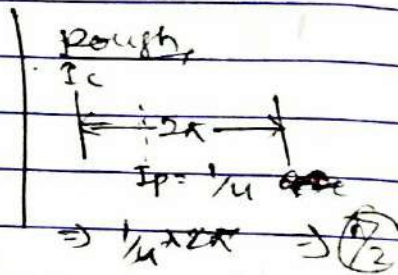 Rough,
Ic
2π
Ip = 1/4
⇒ 1/4 × 2π ⇒ π/2